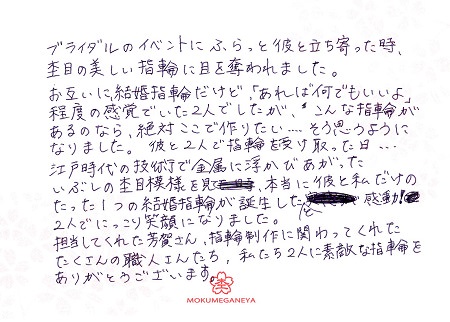 ブライダルのイベントにふらっと彼と立ち寄った時、
杢目の美しい指輪に目を奪われました。
お互いに結婚指輪だけど、「あれば何でもいいよ」
程度の感覚でいた2人でしたが、こんな指輪が
あるのなら、絶対ここで作りたい…そう思うように
なりました。彼と2人で指輪を受け取った日…
江戸時代の技術で金属に浮かびあがった
いぶしの杢目模様を見、本当に彼と私だけの
たった1つの結婚指輪が誕生したと感動!
2人でにっこり笑顔になりました。
担当してくれた芳賀さん、指輪制作に関わってくれた
たくさんの職人さんたち、私たち2人に素敵な指輪を
ありがとうございます。
MOKUMEGANEYA